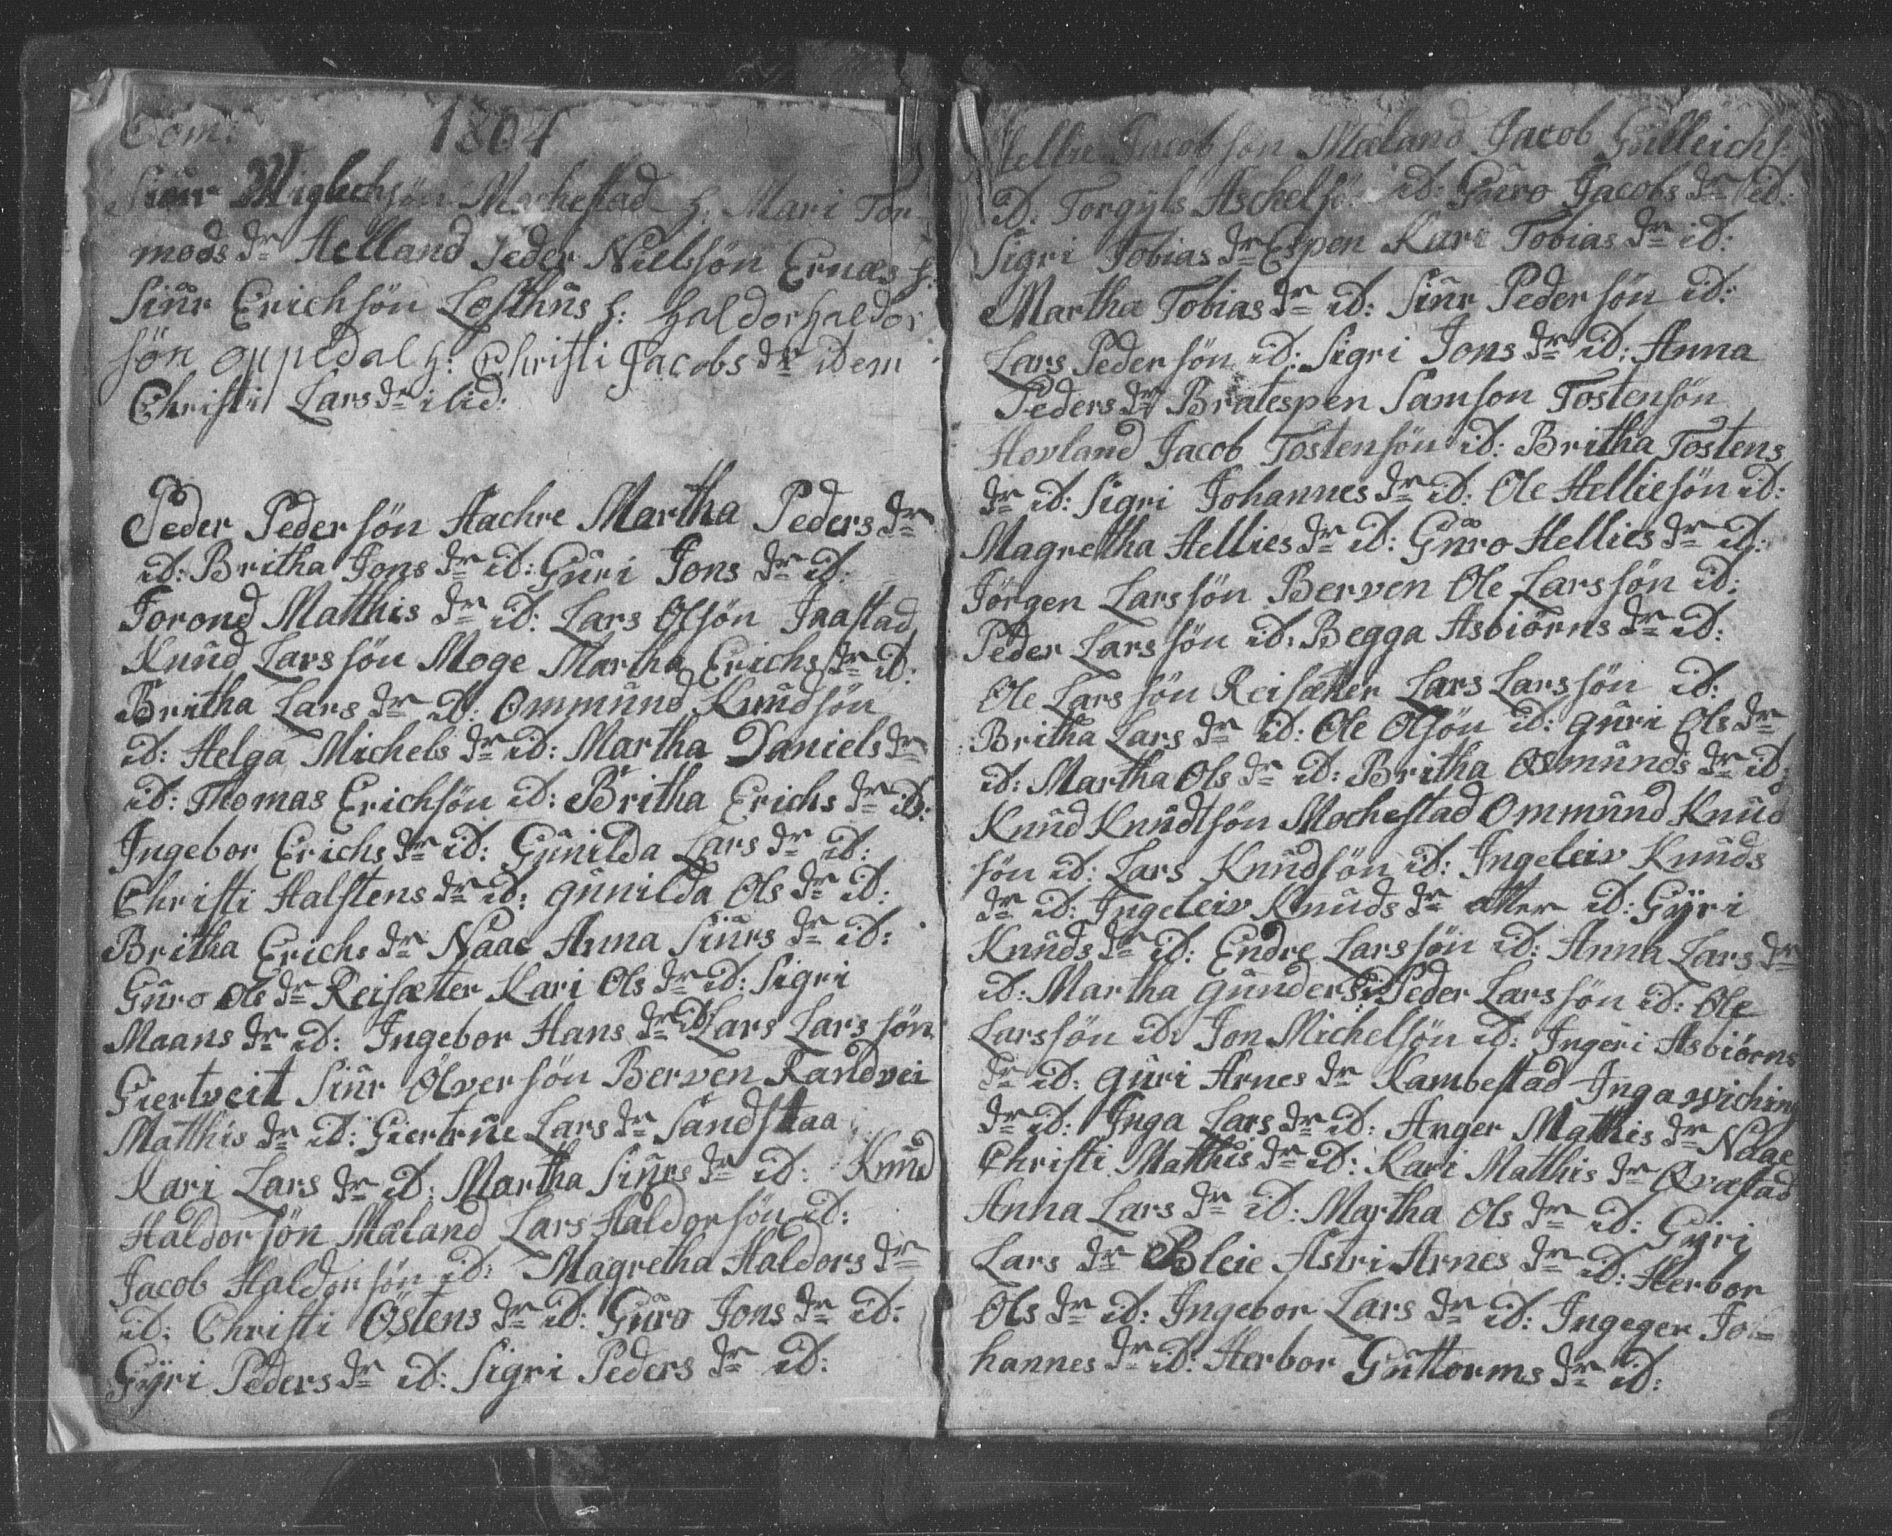 Com: 1804
Siur Miglichsön Mochestad h: Mari Tor
mods dr Helland Peder Nielssön Ernæs h:
Siur Erichsön Lofthus h: Haldor Haldor
sön Oppedal h: Christi Jacobs dr idem
Christi Lars dr ibid:
Peder Pedersön Aachre Martha Peders dr
id: Britha Jons dr id: Guri Jons dr id:
Torond Matthis dr id: Lars Olsön Jaastad
Knud Larssön Moge Martha Erichs dr id:
Britha Lars dr id: Ommund Knudsön
id: Helga Michels dr id: Martha Daniels dr
id: Thomas Erichsön id: Britha Erichs dr id:
Ingebor Erichs dr id: Gunilda Lars dr id:
Christi Halstens dr id: gunilda Ols dr id:
Britha Erichs dr Naae Anna Siurs dr id:
Guro Ols dr Reisæter Kari Ols dr id: Sigri
Maans dr id: Ingebor Hans dr id Lars Larssön
Giertveit Siur Olversön Berven Randvei
Matthis dr id: Giertrue Lars dr Sandstaa
Kari Lars dr id: Martha Siurs dr id: Knud
Haldorsön Mæland Lars Haldorsön id:
Jacob Haldorsön id: Magretha Haldors dr
id: Christi Östens dr id: Guro Jons dr id:
Gÿri Peders dr id: Sigri Peders dr id:
Hellie Jacobsön Mæland Jacob Gulleichs:
id: Torgÿls Aschelsö id: Guro Jacobs dr id:
Sigri Tobias dr Espen Kari Tobias dr id:
Martha Tobias dr id: Siur Pedersön id:
Lars Pedersön id: Sigri Jons dr id: Anna
Peders dr Bratespen Samson Tostensön
Hovland Jacob Tostensön id: Britha Tostens
dr id: Sigri Johannes dr id: Ole Helliesön id:
Magretha Hellies dr id: Guro Hellies dr id:
Jörgen Larssön Berven Ole Larssön id:
Peder Larssön id: Begga Asbiörns dr id:
Ole Larssön Reisæter Lars Larssön id:
Britha Lars dr id: Ole Olsön id: guri Ols dr
id: Martha Ols dr id: Britha Osmunds dr id:
Knud Knudtsön Mochestad Ommund Knud
sön id: Lars Knudsön id: Ingeleiv Knuds
dr id: Ingeleiv Knuds dr atter id: Gÿri
Knuds dr id: Endre Larssön id: Anna Lars dr
id: Martha gunders Peder Larssön id: Ole
Larssön id: Jon Michelsön id: Ingeri Asbiörns
dr id: guri Arnes dr Kambestad Inga wiching
dr id: Inga Lars dr id: Anger Mathis dr Naae
Christi Matthis dr id: Kari Matthis dr Qvæstad
Anna Lars dr id: Martha Ols dr id: Gÿri
Lars dr Bleie Astri Arnes dr id: Herbor
Ols dr id: Ingebor Lars dr id: Ingeger Jo=
hannes dr id: Herbor Guttorms dr id: